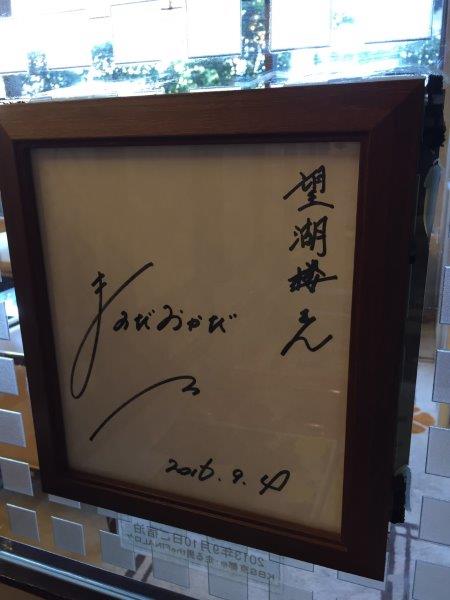 望湖楼さん
ますだおかだ
2016.9.4
2013年9月10日ご宿泊